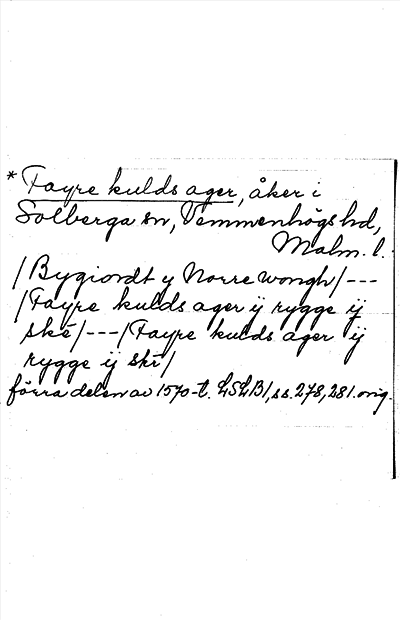 * Fayre kulds ager, åker i
Solberga sn, Vemmenhögs hd,
Malm. l.
/Bygiordt y Norre wongh/---
/Fayre kulds ager ij rygge ij
ske/---/Fayre kulds ager ij
rygge ij ski/
förra delen av 1570-t. LSLB1, ss. 278, 281. orig.